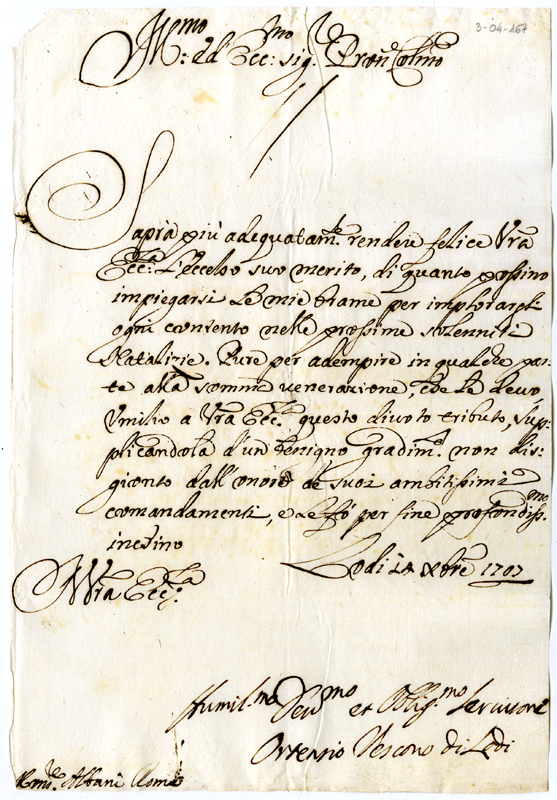 3-04-167
Ill.mo et Ecc.mo Sig.re Pron Colmo
Saprà più adequatam.te rendere felice Vra
Ecc.za l'eccelso suo merito, di quanto possino
impiegarsi le mie brame per implorargli
ogni contento nelle prossime solennità
Natalizie. Pure per adempire in qualche par-
te alla somma venerazione, che le devo,
Umilio a Vra Ecc.za questo divoto tributo, sup-
plicandola d'un benigno gradim.to non dis-
gionto dall'onore de suoi ambitissimi
comandamenti, e le fò per fine profondiss.mo
inchino
Lodi 14 Xbre 1707
Di Vra Ecc.za
Humil.mo Dev.mo et Oblig.mo Servitore
Ortensio Vescovo di Lodi
Albani Roma